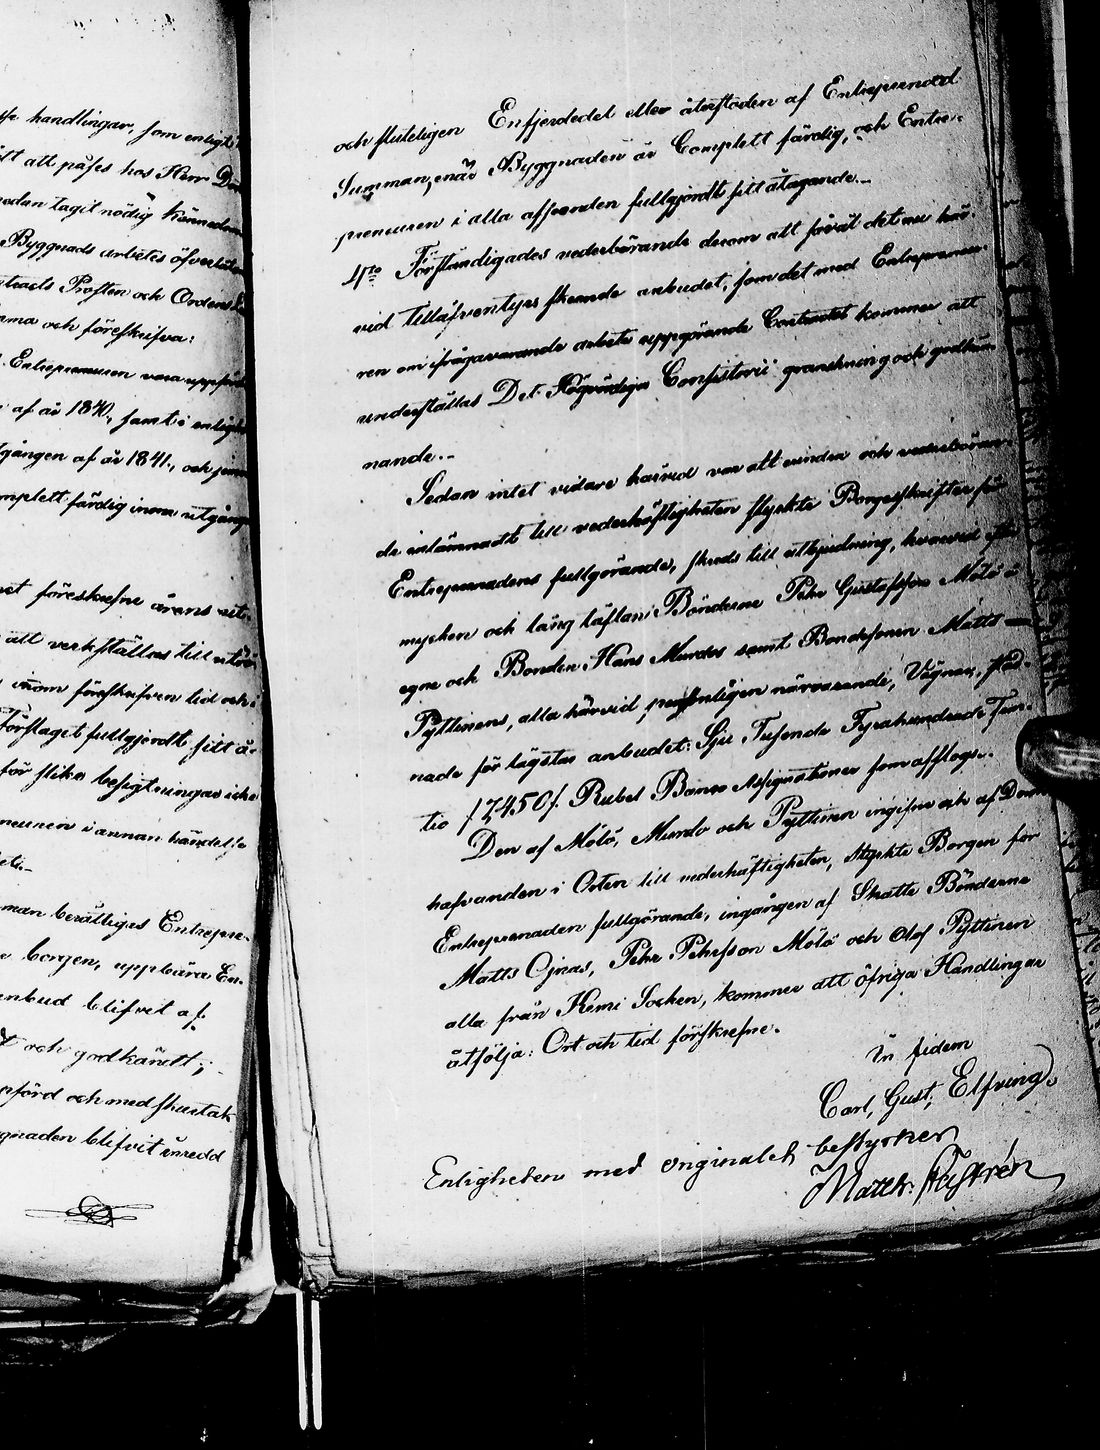 se handlingar, som enligt
att påses hos Herr
medan tagit nödig kännedom
Byggnads arbetes öfver
Prosten och Ordens
och föreskrifva:
Entrepreneuren vara
af år 1840, samt i
gången af år 1841, och
mplett färdig inom utgång
föreskrefne årens
att verkställas till
inom föreskrifven tid och i
förslaget fullgjordt sitt å-
för slika besigtningar icke
neuren i annan händelse
man berättigas Entrepre-
borgen, uppbära En-
anbud blifvit af
och godkändt;
pförd och med
gnaden blifvit inredd
och sluteligen Enfjerdedel eller återstoden af Entreprenad
Summan, enär Byggnaden är Complett färdig, och Entre-
preneuren i alla afseenden fullgjordt sitt åtagande.-
4to Förständigades vederbörande derom att såväl det nu här-
vid tilläfventyrs skeende anbudet, som det med Entrepreneu-
ren om ifrågavarande arbete uppgörande Contractet kommer att
underställas Det Högvördiga Consistorii granskning och godkän-
nande.-
Sedan intet vidare härvid var att erindra och vederböran-
de inlämnadt till vederhäftigheten styrkte Borgesskrifter för
Entreprenadens fullgörande, skreds till utbjudning, hvarvid efter
mycken och lång täflan Bönderne Pehr Gustafsson Mölö å
egne och Bonden Hans Murdos samt Bondesonen Matts
Pyttinens, alla härvid personligen närvarande, Vägnar, stad-
nade för lägsta anbudet: Sju Tusende Fyrahundrade Fem-
tio /7450/. Rubel Banco Assignationer som afslogs.-
Den af Mölö, Murdo och Pyttinen ingifne och af Dom-
hafvanden i Orten till vederhäftigheten, styrkte Borgen för
Entreprenaden fullgörande, ingången af Skatte Bönderne
Matts Ojnas, Pehr Pehrsson Mölö och Olof Pyttinen
alla från Kemi Socken, kommer att öfriga Handlingar
åtfölja: Ort och tid förskrefne.
In fidem
Carl, Gust, Elfving.
Enligheten med originalet bestyrker